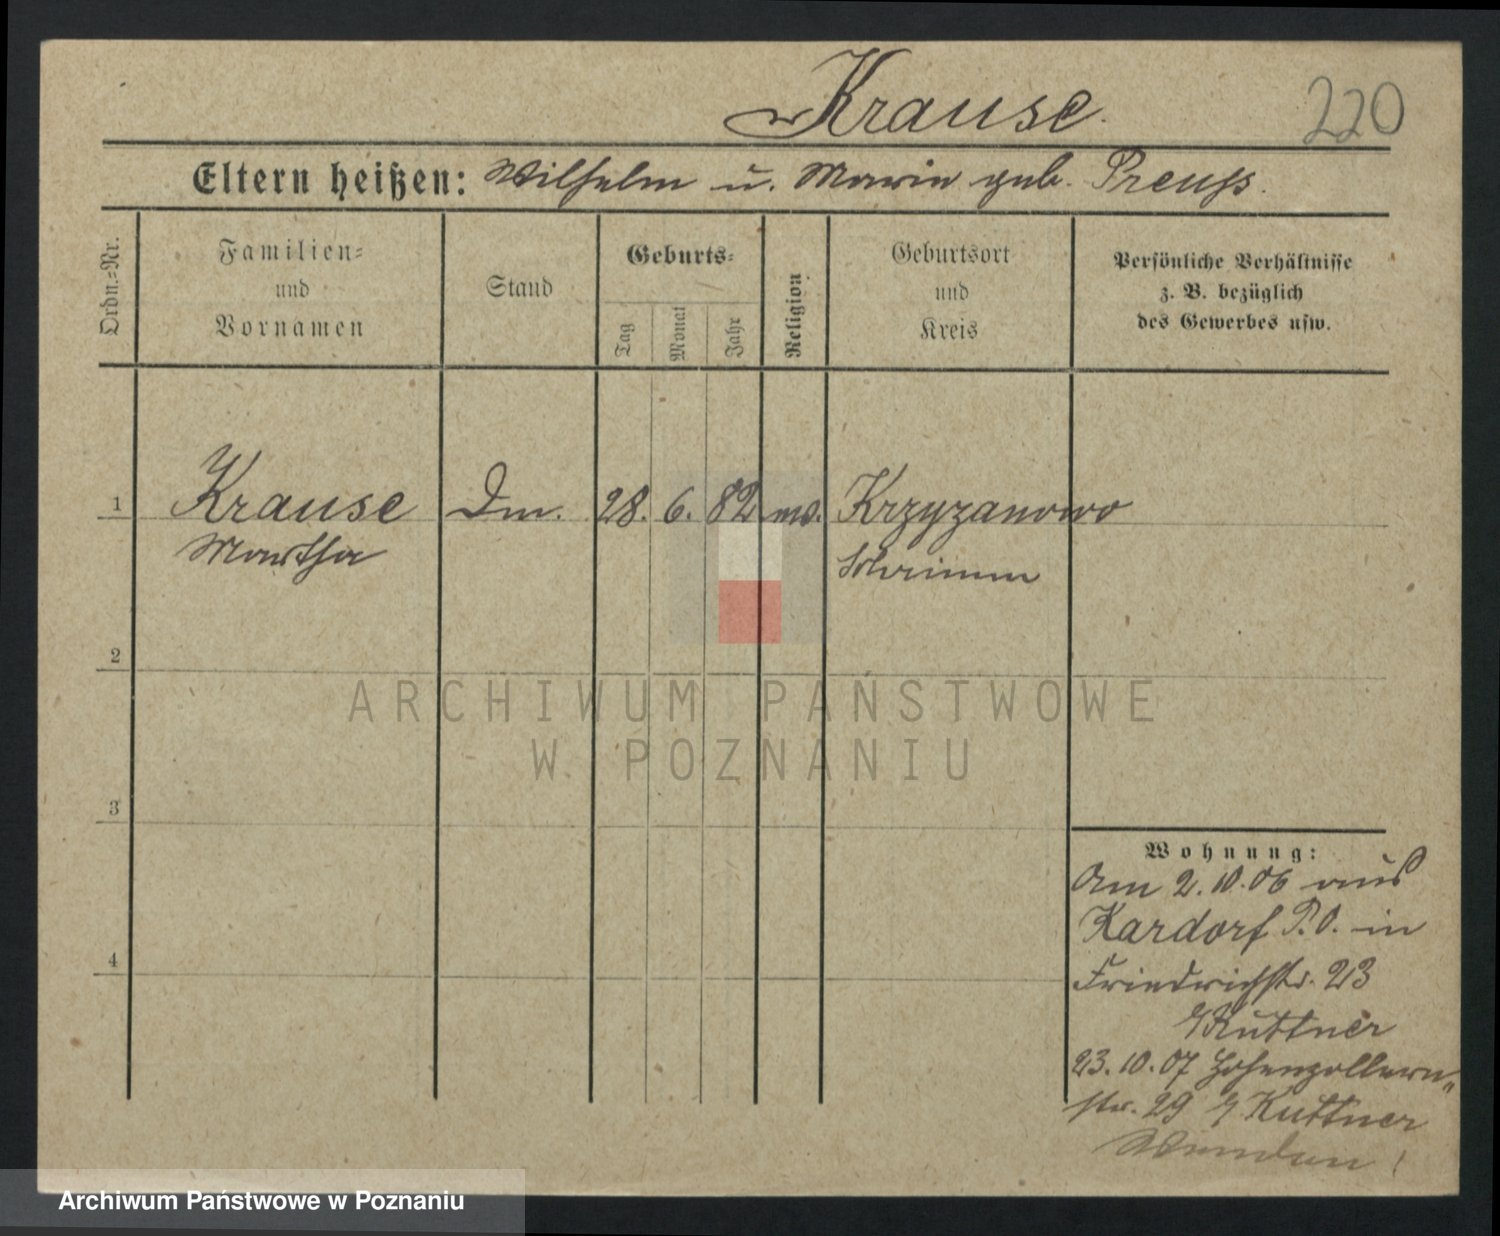 Krause.
220
Eltern heißen: Wilhelm u. Marie geb. Preuß.
Ordn.-Nr.
Familien-
und
Vornamen
Stand
Geburts-
Tag
Monat
Jahr
Religion
Geburtsort
und
Kreis
Persönliche Verhältnisse
z. B. bezüglich
des Gewerbes usw.
1 Krause Dm. 28. 6. 82 ev. Krzyzanowo
Martha Schrimm
2
3
4
Wohnung:
Am 2.10.06 aus
Kardorf P.O. in
Friedrichstr. 23
b/Kuttner
23.10.07 Hohenzollern-
str. 29 b/Kuttner
Wenden!
ARCHIWUM PAŃSTWOWE
W POZNANIU
Archiwum Państwowe w Poznaniu